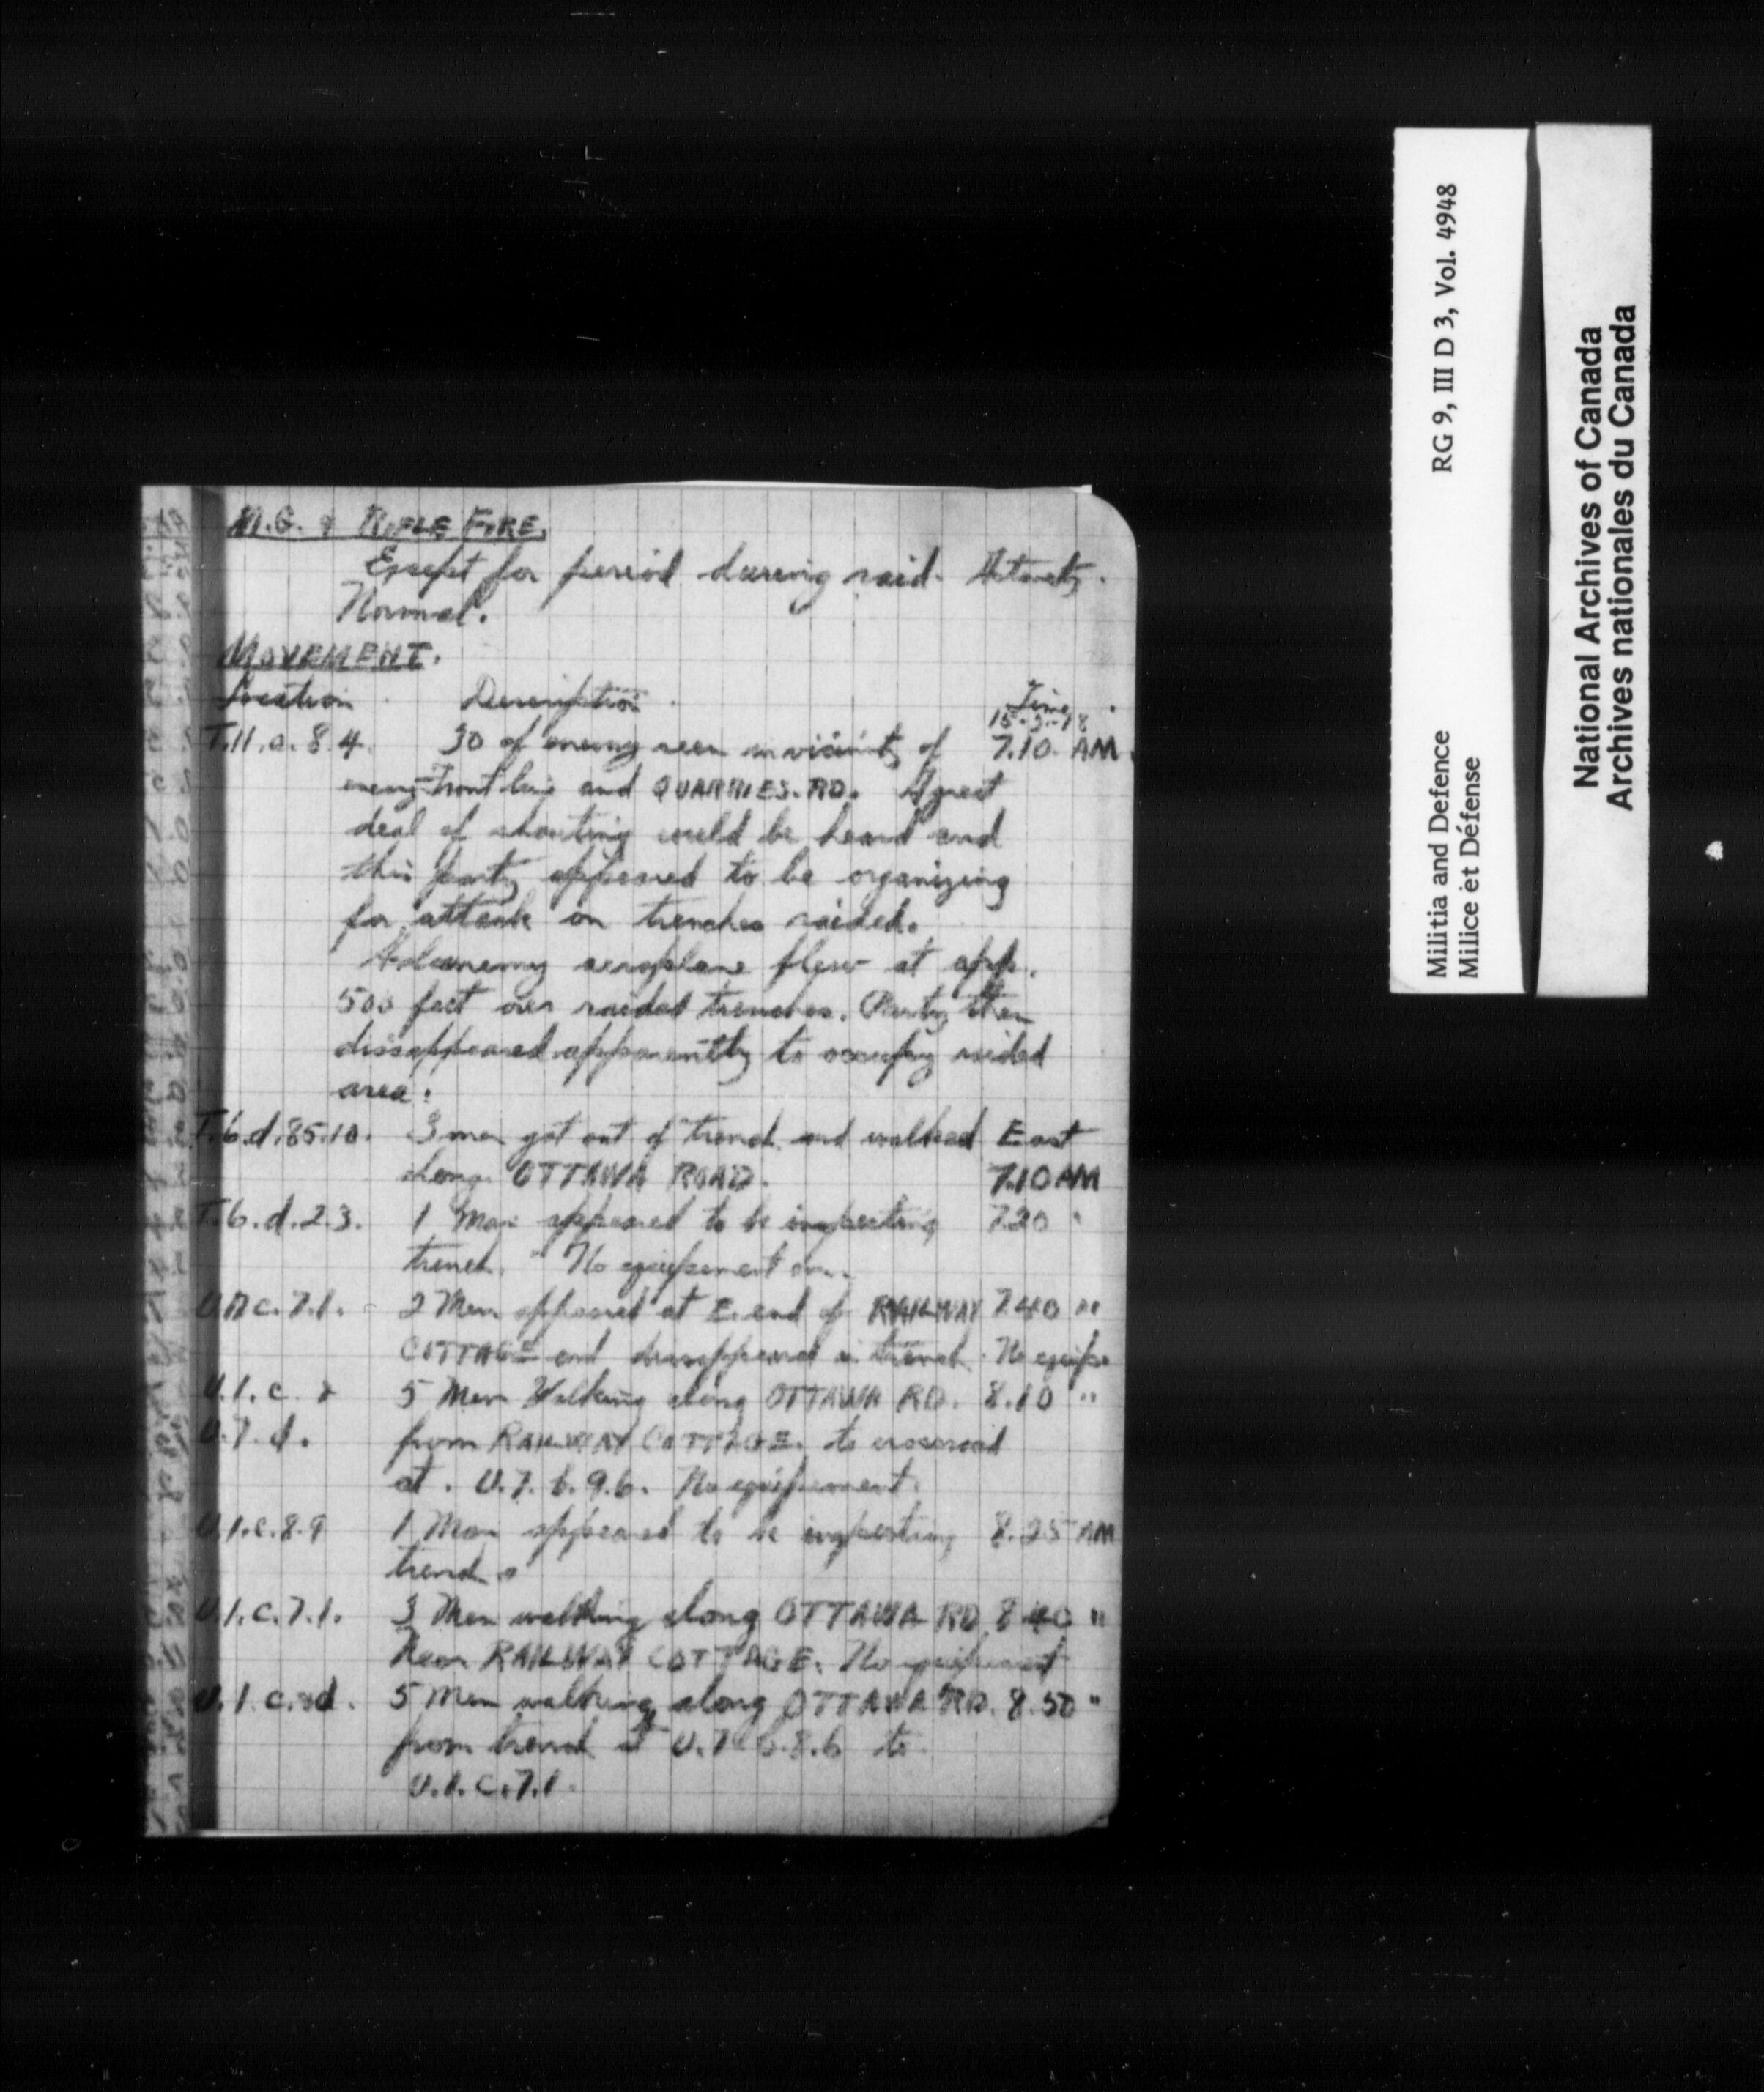 M.G. & RIFLE FIRE.
Except for period during raid. Activity.
Normal.
MOVEMENT.
Location Description Time
15-3-18
T.11.a.8.4. 30 of enemy seen in vicinity of 7.10. AM.
enemy front line and QUARRIES.RD. A great
deal of shouting could be heard and
this party appeared to be organizing
for attack on trenches raided.
enemy aeroplane flew at app.
500 feet over raided trenches. Party then
dissappeared apparently to occupy raided
area.
T.6.d.85.10. 3 men got out of trench and walked East
along OTTAWA ROAD. 7.10 AM
T.6.d.2.3. 1 Man appeared to be inspecting 7.20 "
trench. No equipement on.
c.7.1. 2 Men appeared at E. end of RAILWAY 7.40 "
COTTAGE and dissappeared in trench. No equip.
U.1.c. & 5 Men Walking along OTTAWA RD. 8.10 "
U.7.d. from RAILWAY COTTAGE. to crossroad
at. U.7.b.9.6. No equipement.
U.1.c.8.9 1 Man appeared to be inspecting 8.25 AM
trench.
U.1.c.7.1. 3 Men walking along OTTAWA RD 8.40 "
Near RAILWAY COTTAGE. No equipement
U.1.c.&d. 5 Men walking along OTTAWA RD. 8.50 "
from trench at U.7.b.8.6 to
U.1.c.7.1.
Militia and Defence RG 9, III D 3, Vol. 4948
Milice et Défense
National Archives of Canada
Archives nationales du Canada